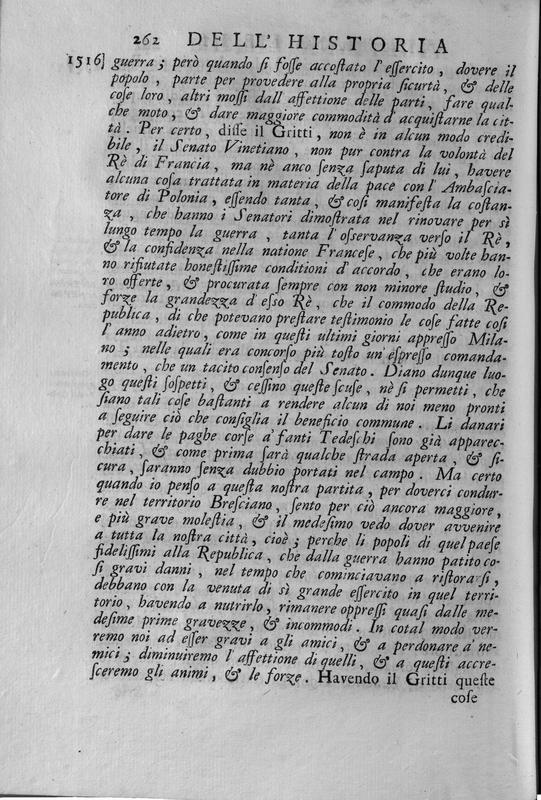 262 DELL' HISTORIA
1516] guerra; però quando si fosse accostato l'essercito, dovere il
popolo, parte per provedere alla propria sicurtà, & delle
cose loro, altri mossi dall'affettione delle parti, fare qual-
che moto, & dare maggiore commodità d'acquistarne la cit-
tà. Per certo, disse il Gritti, non è in alcun modo credi-
bile, il Senato Vinetiano, non pur contra la volontà del
Rè di Francia, ma nè anco senza saputa di lui, havere
alcuna cosa trattata in materia della pace con l'Ambascia-
tore di Polonia, essendo tanta, & così manifesta la costan-
za, che hanno i Senatori dimostrata nel rinovare per sì
lungo tempo la guerra, tanta l'osservanza verso il Rè,
& la confidenza nella natione Francese, che più volte han-
no rifiutate honestissime conditioni d'accordo, che erano lo-
ro offerte, & procurata sempre con non minore studio, &
forze la grandezza d'esso Rè, che il commodo della Re-
publica, di che potevano prestare testimonio le cose fatte così
l'anno adietro, come in questi ultimi giorni appresso Mila-
no; nelle quali era concorso più tosto un'espresso comanda-
mento, che un tacito consenso del Senato. Diano dunque luo-
go questi sospetti, & cessino queste scuse, nè si permetti, che
siano tali cose bastanti a rendere alcun di noi meno pronti
a seguire ciò che consiglia il beneficio commune. Li danari
per dare le paghe corse a' fanti Tedeschi sono già apparec-
chiati, & come prima sarà qualche strada aperta, & si-
cura, saranno senza dubbio portati nel campo. Ma certo
quando io penso a questa nostra partita, per doverci condur-
re nel territorio Bresciano, sento per ciò ancora maggiore,
e più grave molestia, & il medesimo vedo dover avvenire
a tutta la nostra città, cioè; perche li popoli di quel paese
fidelissimi alla Republica, che dalla guerra hanno patito co-
si gravi danni, nel tempo che cominciavano a ristorarsi,
debbano con la venuta di sì grande essercito in quel terri-
torio, havendo a nutrirlo, rimanere oppressi quasi dalle me-
desime prime gravezze, & incommodi. In cotal modo ver-
remo noi ad esser gravi a gli amici, & a perdonare a' ne-
mici; diminuiremo l'affettione di quelli, & a questi accre-
sceremo gli animi, & le forze. Havendo il Gritti queste
cose